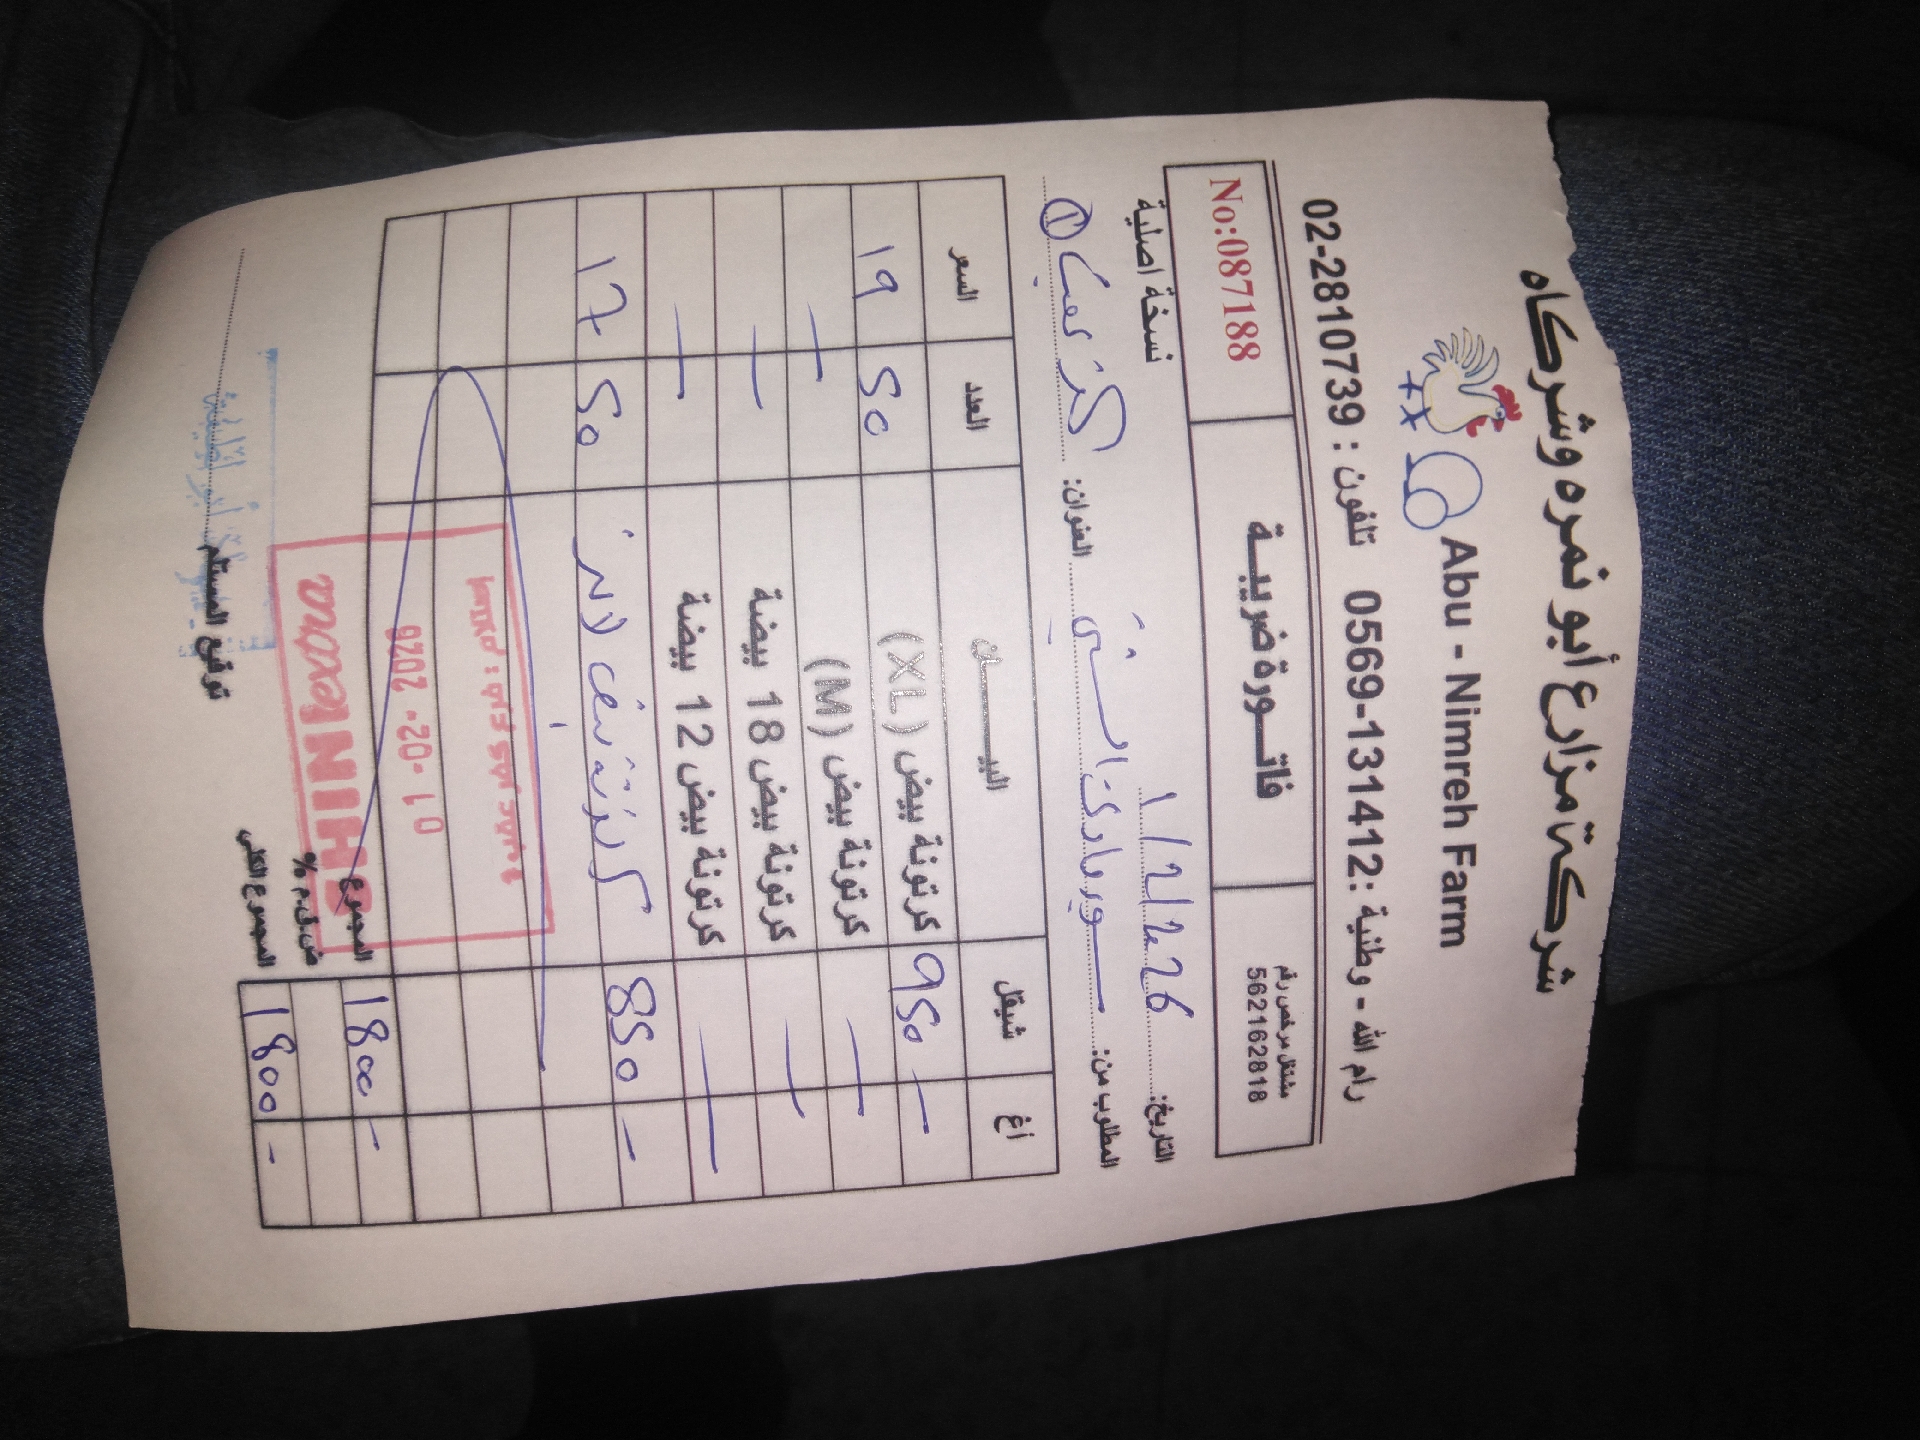 شركة مزارع أبو نمره وشركاه
Abu - Nimreh Farm
رام الله - وطنية :0569-131412 تلفون : 02-2810739
مشتغل مرخص رقم
562162818
فاتورة ضريبية
No:087188
التاريخ: 1/2/26 نسخة اصلية
المطلوب من: سوبرماركت العنوان: كفر عقب ①
أغ شيقل البيـــان العدد السعر
- 950 كرتونة بيض (XL) 50 19
كرتونة بيض (M)
كرتونة بيض 18 بيضة
كرتونة بيض 12 بيضة
- 850 كرتونة بيض 50 17
استلام : فرع كفر عقب 2
01 -02- 2026
SHINI extra
المجموع 1800 -
ض.ق.م %
المجموع الكلي 1800 -
توقيع المستلم